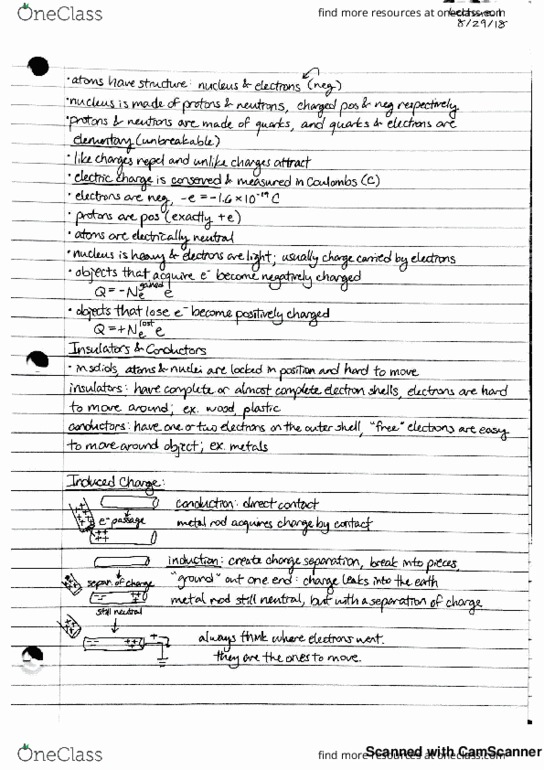 OneClass
find more resources at oneclass.com
8/29/18
• atoms have structure: nucleus & electrons (neg)
• nucleus is made of protons & neutrons, charged pos & neg respectively
• protons & neutrons are made of quarks, and quarks & electrons are
elementary (unbreakable)
• like charges repel and unlike charges attract
• electric charge is conserved & measured in Coulombs (C)
• electrons are neg, -e = -1.6 × 10⁻¹⁹ C
• protons are pos (exactly +e)
• atoms are electrically neutral
• nucleus is heavy & electrons are light; usually charge carried by electrons
• objects that acquire e⁻ become negatively charged
Q = -Nₑ^gained e
• objects that lose e⁻ become positively charged
Q = +Nₑ^lost e
Insulators & Conductors
• in solids, atoms & nuclei are locked in position and hard to move
insulators: have complete or almost complete electron shells, electrons are hard
to move around; ex. wood, plastic
conductors: have one or two electrons on the outer shell, "free" electrons are easy
to move around object; ex. metals
Induced Charge:
conduction: direct contact
e⁻ passage
metal rod acquires charge by contact
induction: create charge separation, break into pieces,
separ. of charge
"ground" out one end: charge leaks into the earth
metal rod still neutral, but with a separation of charge
still neutral
always think where electrons went.
they are the ones to move.
OneClass
find more resources at oneclass.com
Scanned with CamScanner